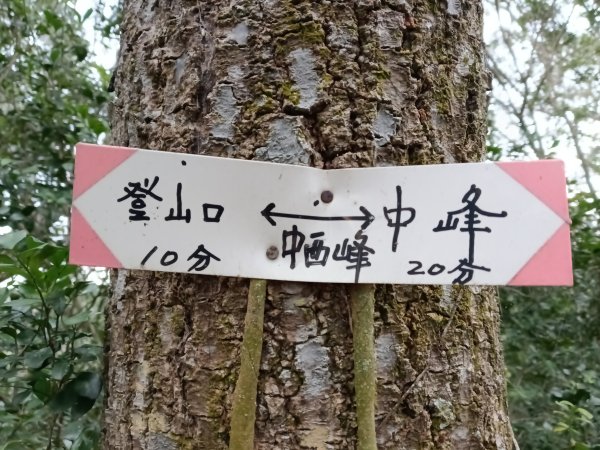 登山口 ←→ 中峰
10分 中西峰 20分